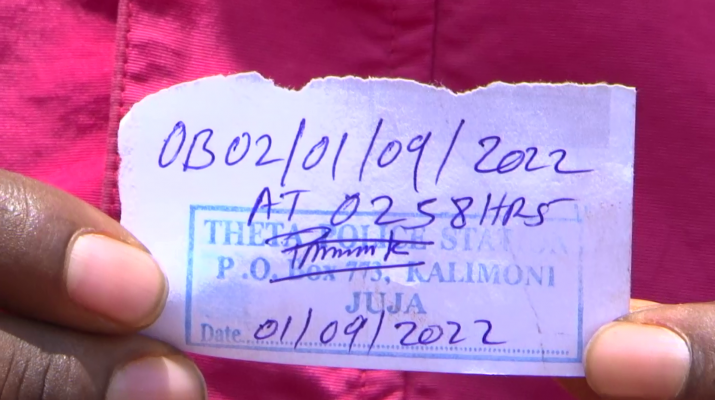 OB02/01/09/2022
AT 0258HRS
THETA POLICE STATION
P.O. Box 773, KALIMONI
JUJA
Date 01/09/2022